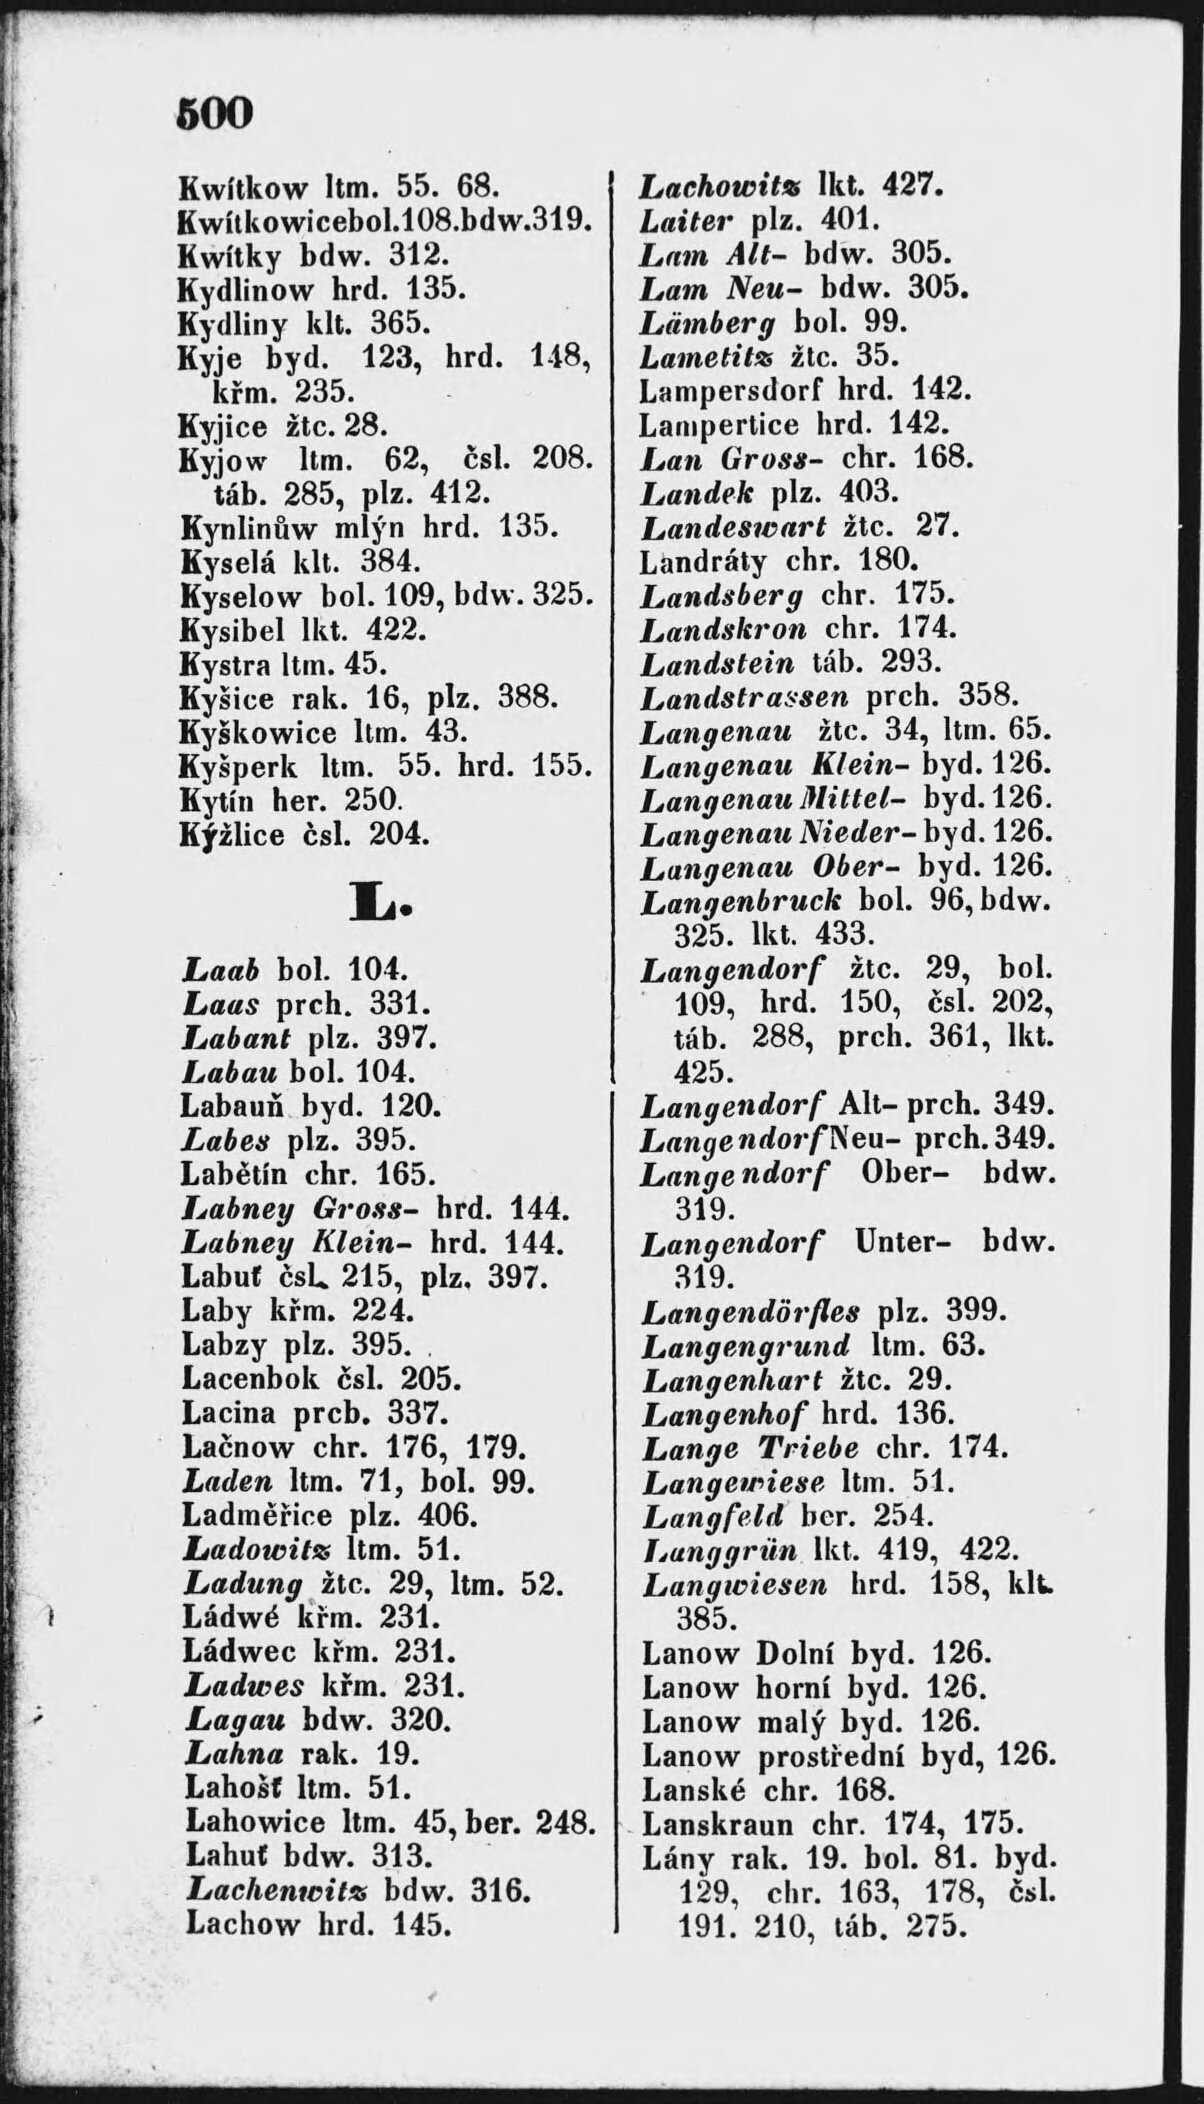 500
Kwítkow ltm. 55. 68.
Kwítkowicebol.108.bdw.319.
Kwítky bdw. 312.
Kydlinow hrd. 135.
Kydliny klt. 365.
Kyje byd. 123, hrd. 148,
křm. 235.
Kyjice žtc. 28.
Kyjow ltm. 62, čsl. 208.
táb. 285, plz. 412.
Kynlinůw mlýn hrd. 135.
Kyselá klt. 384.
Kyselow bol. 109, bdw. 325.
Kysibel lkt. 422.
Kystra ltm. 45.
Kyšice rak. 16, plz. 388.
Kyškowice ltm. 43.
Kyšperk ltm. 55. hrd. 155.
Kytín her. 250.
Kýžlice čsl. 204.
L.
Laab bol. 104.
Laas prch. 331.
Labant plz. 397.
Labau bol. 104.
Labauň byd. 120.
Labes plz. 395.
Labětín chr. 165.
Labney Gross- hrd. 144.
Labney Klein- hrd. 144.
Labuť čsl. 215, plz. 397.
Laby křm. 224.
Labzy plz. 395.
Lacenbok čsl. 205.
Lacina prch. 337.
Lačnow chr. 176, 179.
Laden ltm. 71, bol. 99.
Ladměřice plz. 406.
Ladowitz ltm. 51.
Ladung žtc. 29, ltm. 52.
Ládwé křm. 231.
Ládwec křm. 231.
Ladwes křm. 231.
Lagau bdw. 320.
Lahna rak. 19.
Lahošť ltm. 51.
Lahowice ltm. 45, ber. 248.
Lahuť bdw. 313.
Lachenwitz bdw. 316.
Lachow hrd. 145.
Lachowitz lkt. 427.
Laiter plz. 401.
Lam Alt- bdw. 305.
Lam Neu- bdw. 305.
Lämberg bol. 99.
Lametitz žtc. 35.
Lampersdorf hrd. 142.
Lampertice hrd. 142.
Lan Gross- chr. 168.
Landek plz. 403.
Landeswart žtc. 27.
Landráty chr. 180.
Landsberg chr. 175.
Landskron chr. 174.
Landstein táb. 293.
Landstrassen prch. 358.
Langenau žtc. 34, ltm. 65.
Langenau Klein- byd. 126.
Langenau Mittel- byd. 126.
Langenau Nieder- byd. 126.
Langenau Ober- byd. 126.
Langenbruck bol. 96, bdw.
325. lkt. 433.
Langendorf žtc. 29, bol.
109, hrd. 150, čsl. 202,
táb. 288, prch. 361, lkt.
425.
Langendorf Alt- prch. 349.
Langendorf Neu- prch. 349.
Langendorf Ober- bdw.
319.
Langendorf Unter- bdw.
319.
Langendörfles plz. 399.
Langengrund ltm. 63.
Langenhart žtc. 29.
Langenhof hrd. 136.
Lange Triebe chr. 174.
Langewiese ltm. 51.
Langfeld ber. 254.
Langgrün lkt. 419, 422.
Langwiesen hrd. 158, klt.
385.
Lanow Dolní byd. 126.
Lanow horní byd. 126.
Lanow malý byd. 126.
Lanow prostřední byd, 126.
Lanské chr. 168.
Lanskraun chr. 174, 175.
Lány rak. 19. bol. 81. byd.
129, chr. 163, 178, čsl.
191. 210, táb. 275.